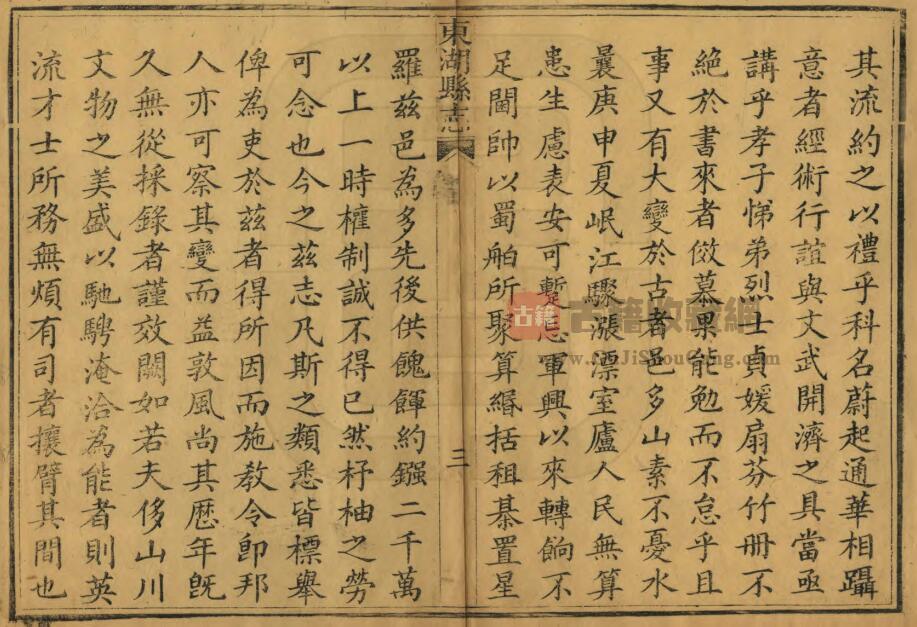 其流約之以禮乎科名蔚起通華相躡
意者經術行誼與文武開濟之具當亟
講乎孝子悌弟烈士貞媛扇芬竹冊不
絶於書來者傚慕果能勉而不怠乎且
事又有大變於古者邑多山素不憂水
曩庚申夏岷江驟漲漂室廬人民無算
患生慮表安可蹔忘軍興以來轉餉不
足閫帥以蜀舶所聚算緡括租棊置星
東湖縣志
三
羅茲邑為多先後供餽餫約鏹二千萬
以上一時權制誠不得已然杼柚之勞
可念也今之茲志乃斯之類悉皆標舉
俾為吏於茲者得所因而施教令卽邦
人亦可察其變而益敦風尚其歷年旣
久無從採錄者謹效闕如若夫侈山川
文物之美盛以馳騁淹洽為能者則英
流才士所務無煩有司者攘臂其間也
古籍收藏網
www.GuJiShouCang.com